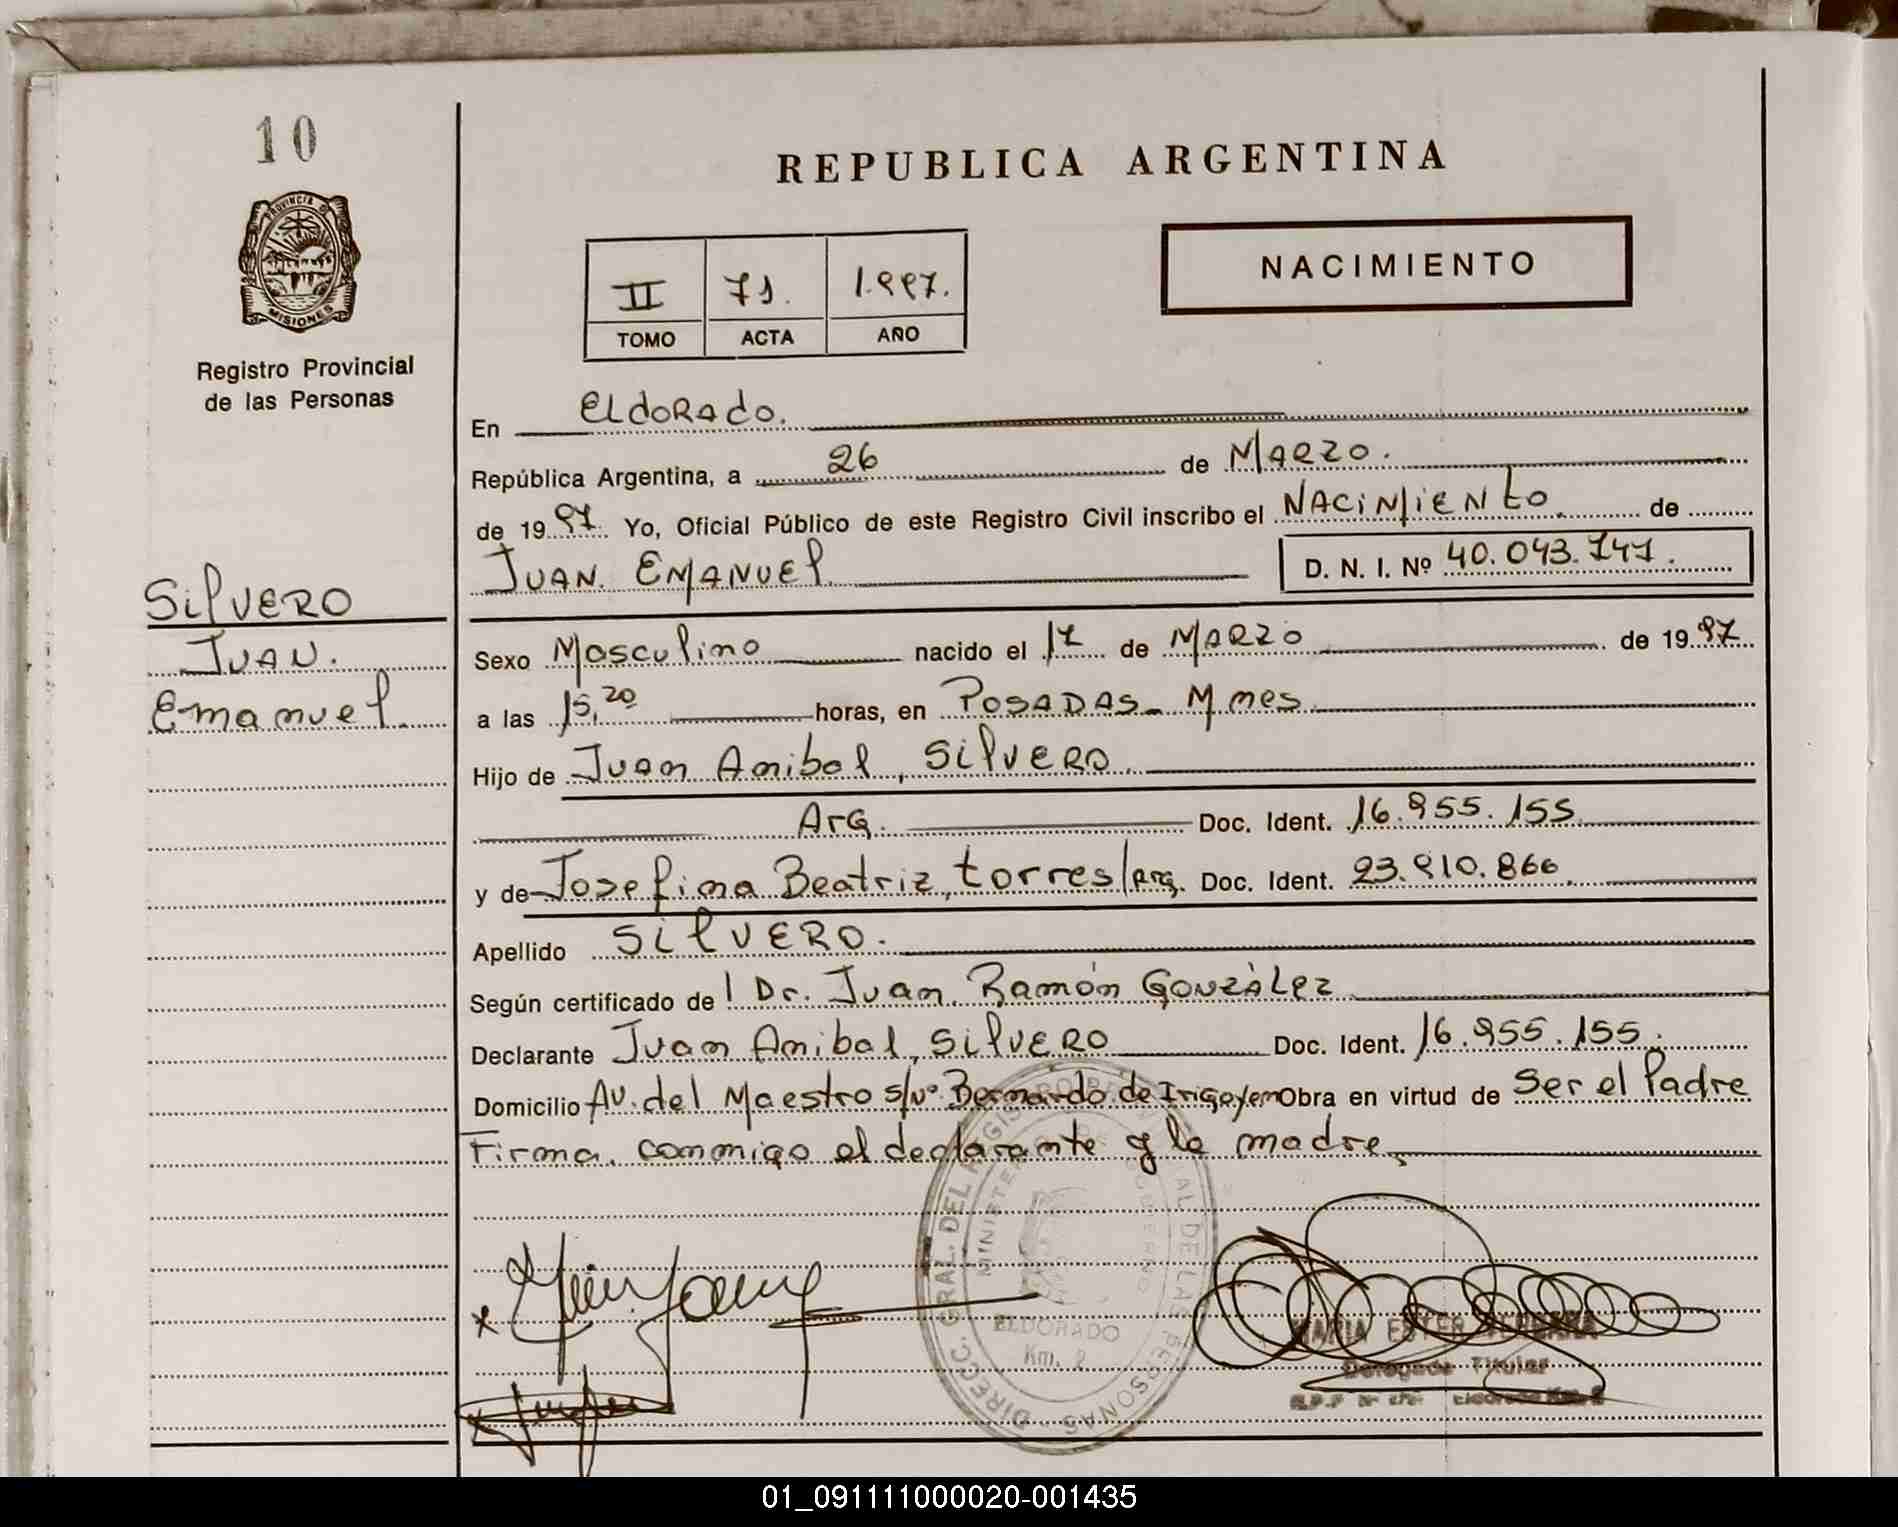 10
PROVINCIA DE
MISIONES
Registro Provincial
de las Personas
REPUBLICA ARGENTINA
NACIMIENTO
II 71. 1.997.
TOMO ACTA AÑO
En ELdoRAdo.
República Argentina, a 26 de MARZO.
de 1997 Yo, Oficial Público de este Registro Civil inscribo el NACiMiENto de
JUAN EMANUEl D. N. I. Nº 40.043.747.
SilVERO
JUAN.
Emanuel
Sexo Masculino nacido el 17 de MARZO de 1997
a las 15,20 horas, en POSADAS- Mnes
Hijo de Juan Anibal, SilVERO.
Arg. Doc. Ident. 16.955.155
y de Josefina Beatriz, torres/Arg. Doc. Ident. 23.910.866
Apellido SilVERO.
Según certificado del Dr. Juan Ramón GonzáLez
Declarante Juan Anibal, SilVERO Doc. Ident. 16.955.155.
Domicilio AV. del Maestro s/Nº Bernardo de Irigoyen Obra en virtud de Ser el Padre
Firma conmigo el declarante y la madre,
DIRECC. GRAL. DEL REGISTRO PROVINCIAL DE LAS PERSONAS
MINISTERIO DE GOBIERNO
ELDORADO
Km. 2
MARIA ESTER
Delegada Titular
Eldorado Km. 2
01_091111000020-001435